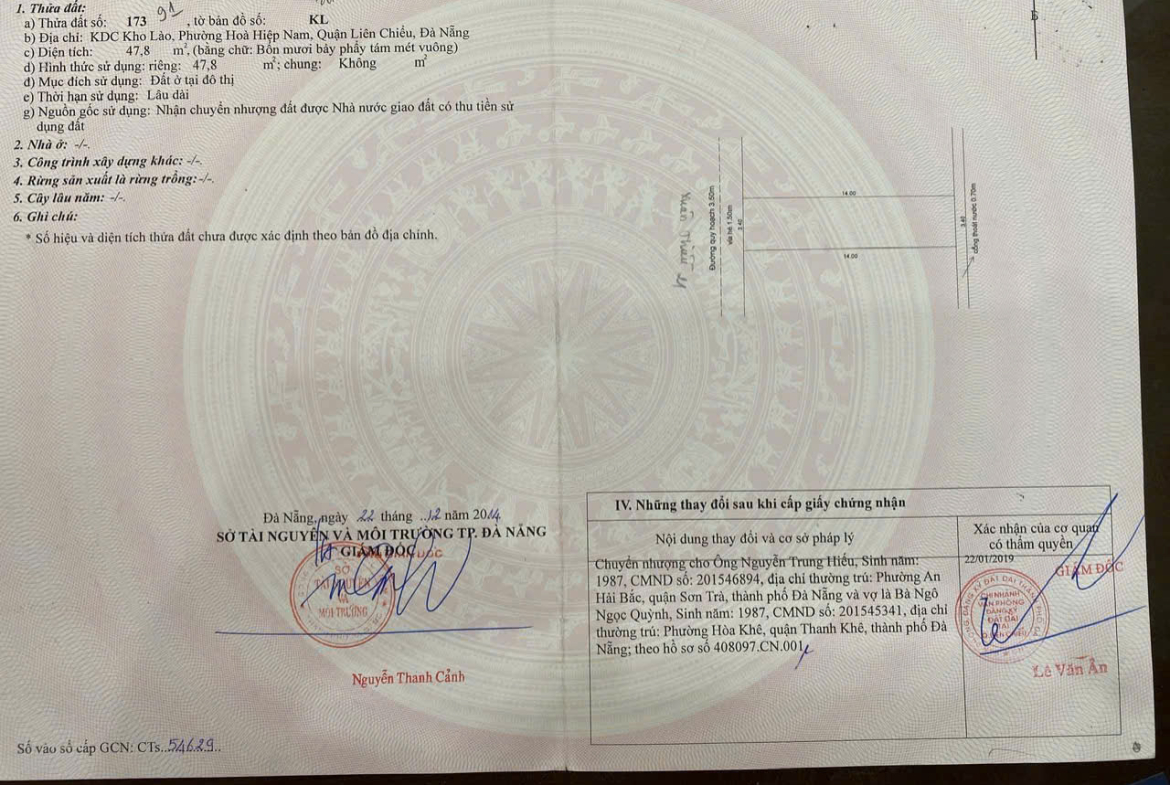 1. Thửa đất:
a) Thửa đất số: 173 91 , tờ bản đồ số: KL
b) Địa chỉ: KDC Kho Lào, Phường Hoà Hiệp Nam, Quận Liên Chiểu, Đà Nẵng
c) Diện tích: 47,8 m², (bằng chữ: Bốn mươi bảy phẩy tám mét vuông)
d) Hình thức sử dụng: riêng: 47,8 m²; chung: Không m²
đ) Mục đích sử dụng: Đất ở tại đô thị
e) Thời hạn sử dụng: Lâu dài
g) Nguồn gốc sử dụng: Nhận chuyển nhượng đất được Nhà nước giao đất có thu tiền sử
dụng đất
2. Nhà ở: -/-.
3. Công trình xây dựng khác: -/-.
4. Rừng sản xuất là rừng trồng: -/-.
5. Cây lâu năm: -/-.
6. Ghi chú:
* Số hiệu và diện tích thửa đất chưa được xác định theo bản đồ địa chính.
B
Xuân Thiều 24
Đường quy hoạch 3.50m
vỉa hè 1.50m
3.40
14.00
14.00
3.40
cống thoát nước 0.70m
Đà Nẵng, ngày 22 tháng ..12 năm 2014
SỞ TÀI NGUYÊN VÀ MÔI TRƯỜNG TP. ĐÀ NẴNG
GIÁM ĐỐC
SỞ
TÀI NGUYÊN
VÀ
MÔI TRƯỜNG
Nguyễn Thanh Cảnh
Số vào sổ cấp GCN: CTs..54629..
IV. Những thay đổi sau khi cấp giấy chứng nhận
Nội dung thay đổi và cơ sở pháp lý
Xác nhận của cơ quan
có thẩm quyền
Chuyển nhượng cho Ông Nguyễn Trung Hiếu, Sinh năm:
1987, CMND số: 201546894, địa chỉ thường trú: Phường An
Hải Bắc, quận Sơn Trà, thành phố Đà Nẵng và vợ là Bà Ngô
Ngọc Quỳnh, Sinh năm: 1987, CMND số: 201545341, địa chỉ
thường trú: Phường Hòa Khê, quận Thanh Khê, thành phố Đà
Nẵng; theo hồ sơ số 408097.CN.001
22/01/2019
GIÁM ĐỐC
CHI NHÁNH
VĂN PHÒNG
ĐĂNG KÝ
ĐẤT ĐAI
TẠI
Lê Văn Ẩn